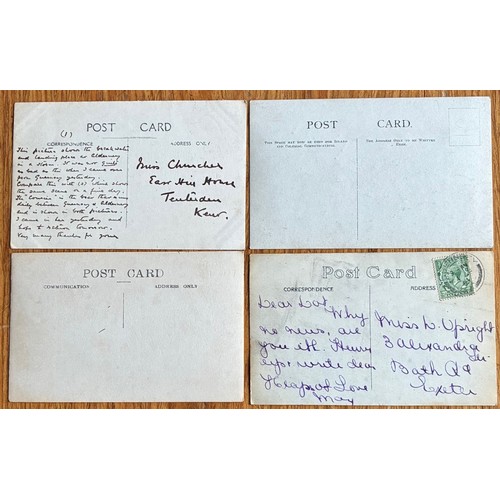 POST CARD
CORRESPONDENCE
ADDRESS ONLY
(1)
This picture shows the breakwater
and landing place at Alderney
in a storm. It was not quite
as bad as this when I came over
from Guernsey yesterday.
Compare this with (2) which shows
the same scene on a fine day.
The "Courier" is the boat that runs
daily between Guernsey & Alderney
and is shown in both pictures.
I came in her yesterday and
hope to return tomorrow.
Very many thanks for yours
Miss Churcher
East Hill House
Tenterden
Kent.
POST CARD.
THIS SPACE MAY NOW BE USED FOR INLAND
AND FOREIGN COMMUNICATIONS.
THE ADDRESS ONLY TO BE WRITTEN
HERE.
POST CARD
COMMUNICATION
ADDRESS ONLY
Post Card
CORRESPONDENCE
ADDRESS
Dear Dot, Why
no news, are
you
write dear
Heaps of Love
May
Miss D. Upright
3 Alexandra
Bath Rd
Exeter